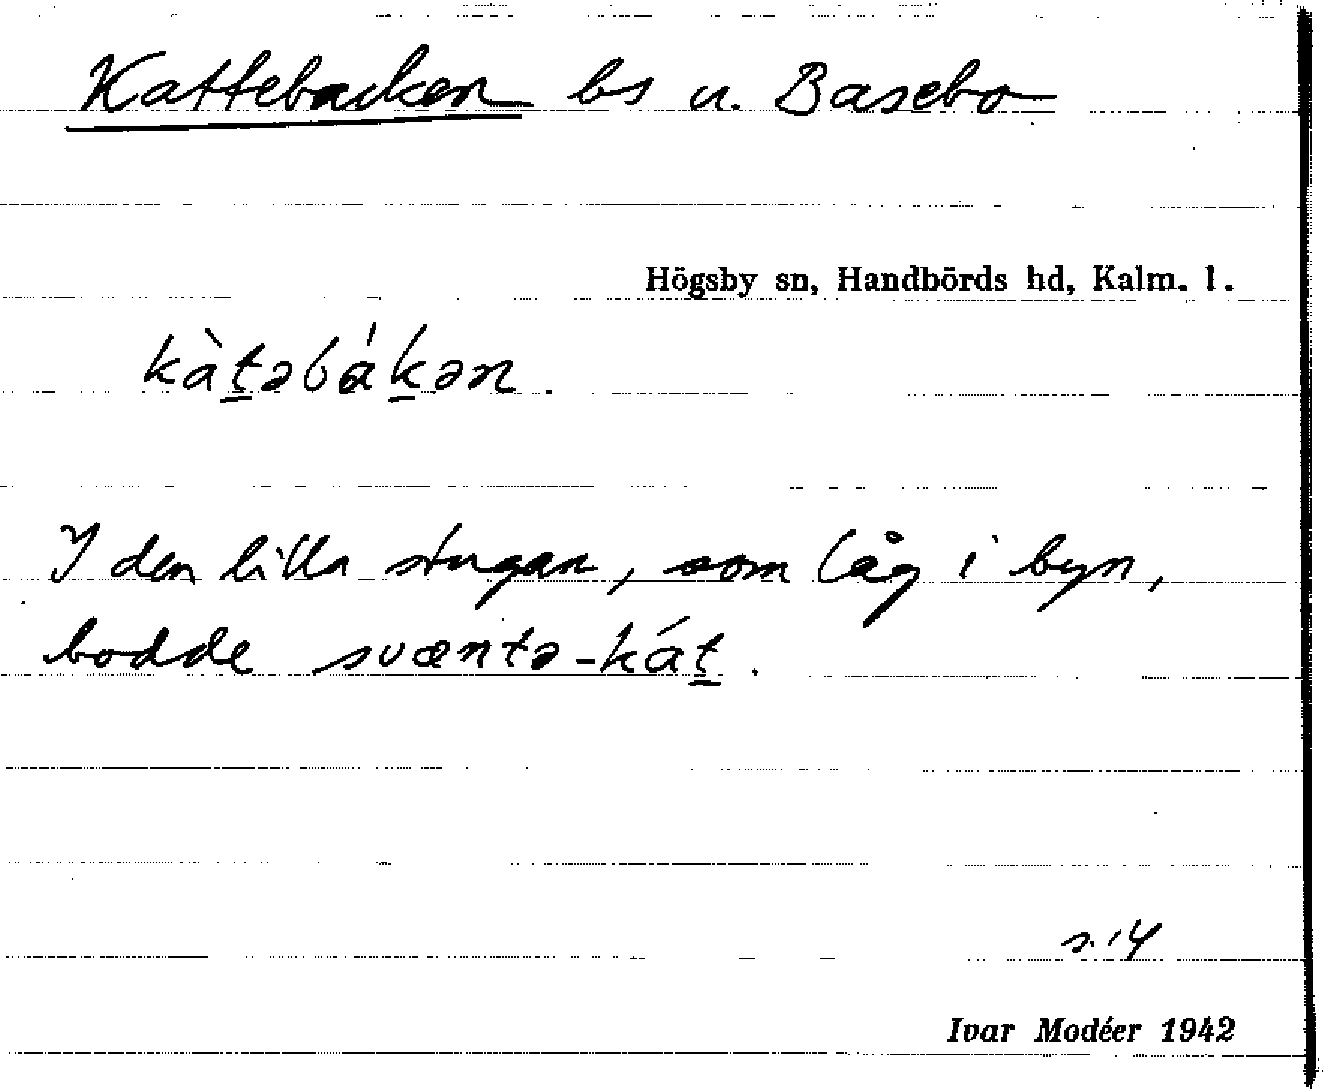 Kattebacken bs u. Basebo
Högsby sn, Handbörds hd, Kalm. l.
kàt̲əbák̲ən.
I den lilla stugan, som låg i byn,
bodde svæntə-kát̲.
s. 14
Ivar Modéer 1942